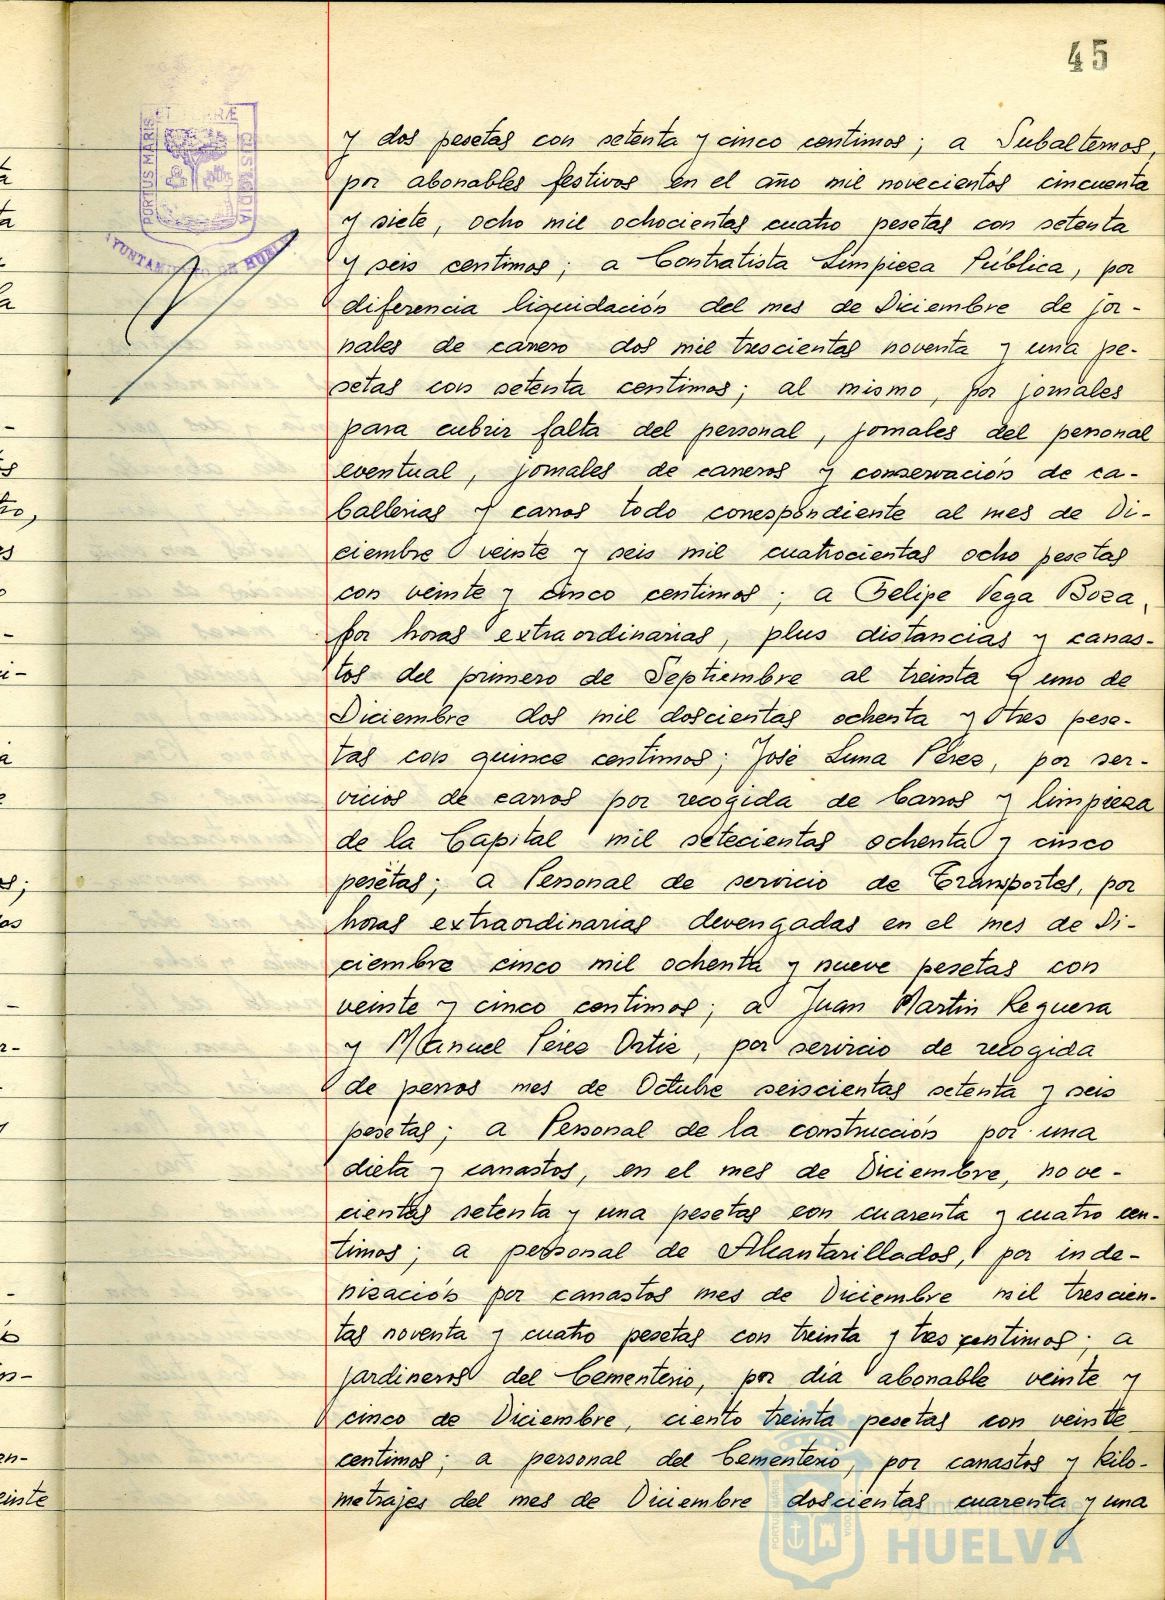 45
PORTUS MARIS
CUSTODIA
AYUNTAMIENTO DE HUELVA
y dos pesetas con setenta y cinco centimos; a Subalternos,
por abonables festivos en el año mil novecientos cincuenta
y siete, ocho mil ochocientas cuatro pesetas con setenta
y seis centimos; a Contratista Limpieza Pública, por
diferencia liquidación del mes de Diciembre de jor-
nales de carrero dos mil trescientas noventa y una pe-
setas con setenta centimos; al mismo, por jornales
para cubrir falta del personal, jornales del personal
eventual, jornales de carreros y conservación de ca-
ballerias y carros todo correspondiente al mes de Di-
ciembre veinte y seis mil cuatrocientas ocho pesetas
con veinte y cinco centimos; a Felipe Vega Boza,
por horas extraordinarias, plus distancias y canas-
tos del primero de Septiembre al treinta y uno de
Diciembre dos mil doscientas ochenta y tres pese-
tas con quince centimos; José Luna Pérez, por ser-
vicios de carros por recogida de barros y limpieza
de la Capital mil setecientas ochenta y cinco
pesetas; a Personal de servicio de Transportes, por
horas extraordinarias devengadas en el mes de Di-
ciembre cinco mil ochenta y nueve pesetas con
veinte y cinco centimos; a Juan Martin Reguera
y Manuel Pérez Ortiz, por servicio de recogida
de perros mes de Octubre seiscientas setenta y seis
pesetas; a Personal de la construcción por una
dieta y canastos, en el mes de Diciembre, nove-
cientas setenta y una pesetas con cuarenta y cuatro cen-
timos; a personal de Alcantarillados, por inde-
nización por canastos mes de Diciembre mil trescien-
tas noventa y cuatro pesetas con treinta y tres centimos; a
jardineros del Cementerio, por día abonable veinte y
cinco de Diciembre, ciento treinta pesetas con veinte
centimos; a personal del Cementerio, por canastos y kilo-
metrajes del mes de Diciembre doscientas cuarenta y una
Ayuntamiento de
HUELVA